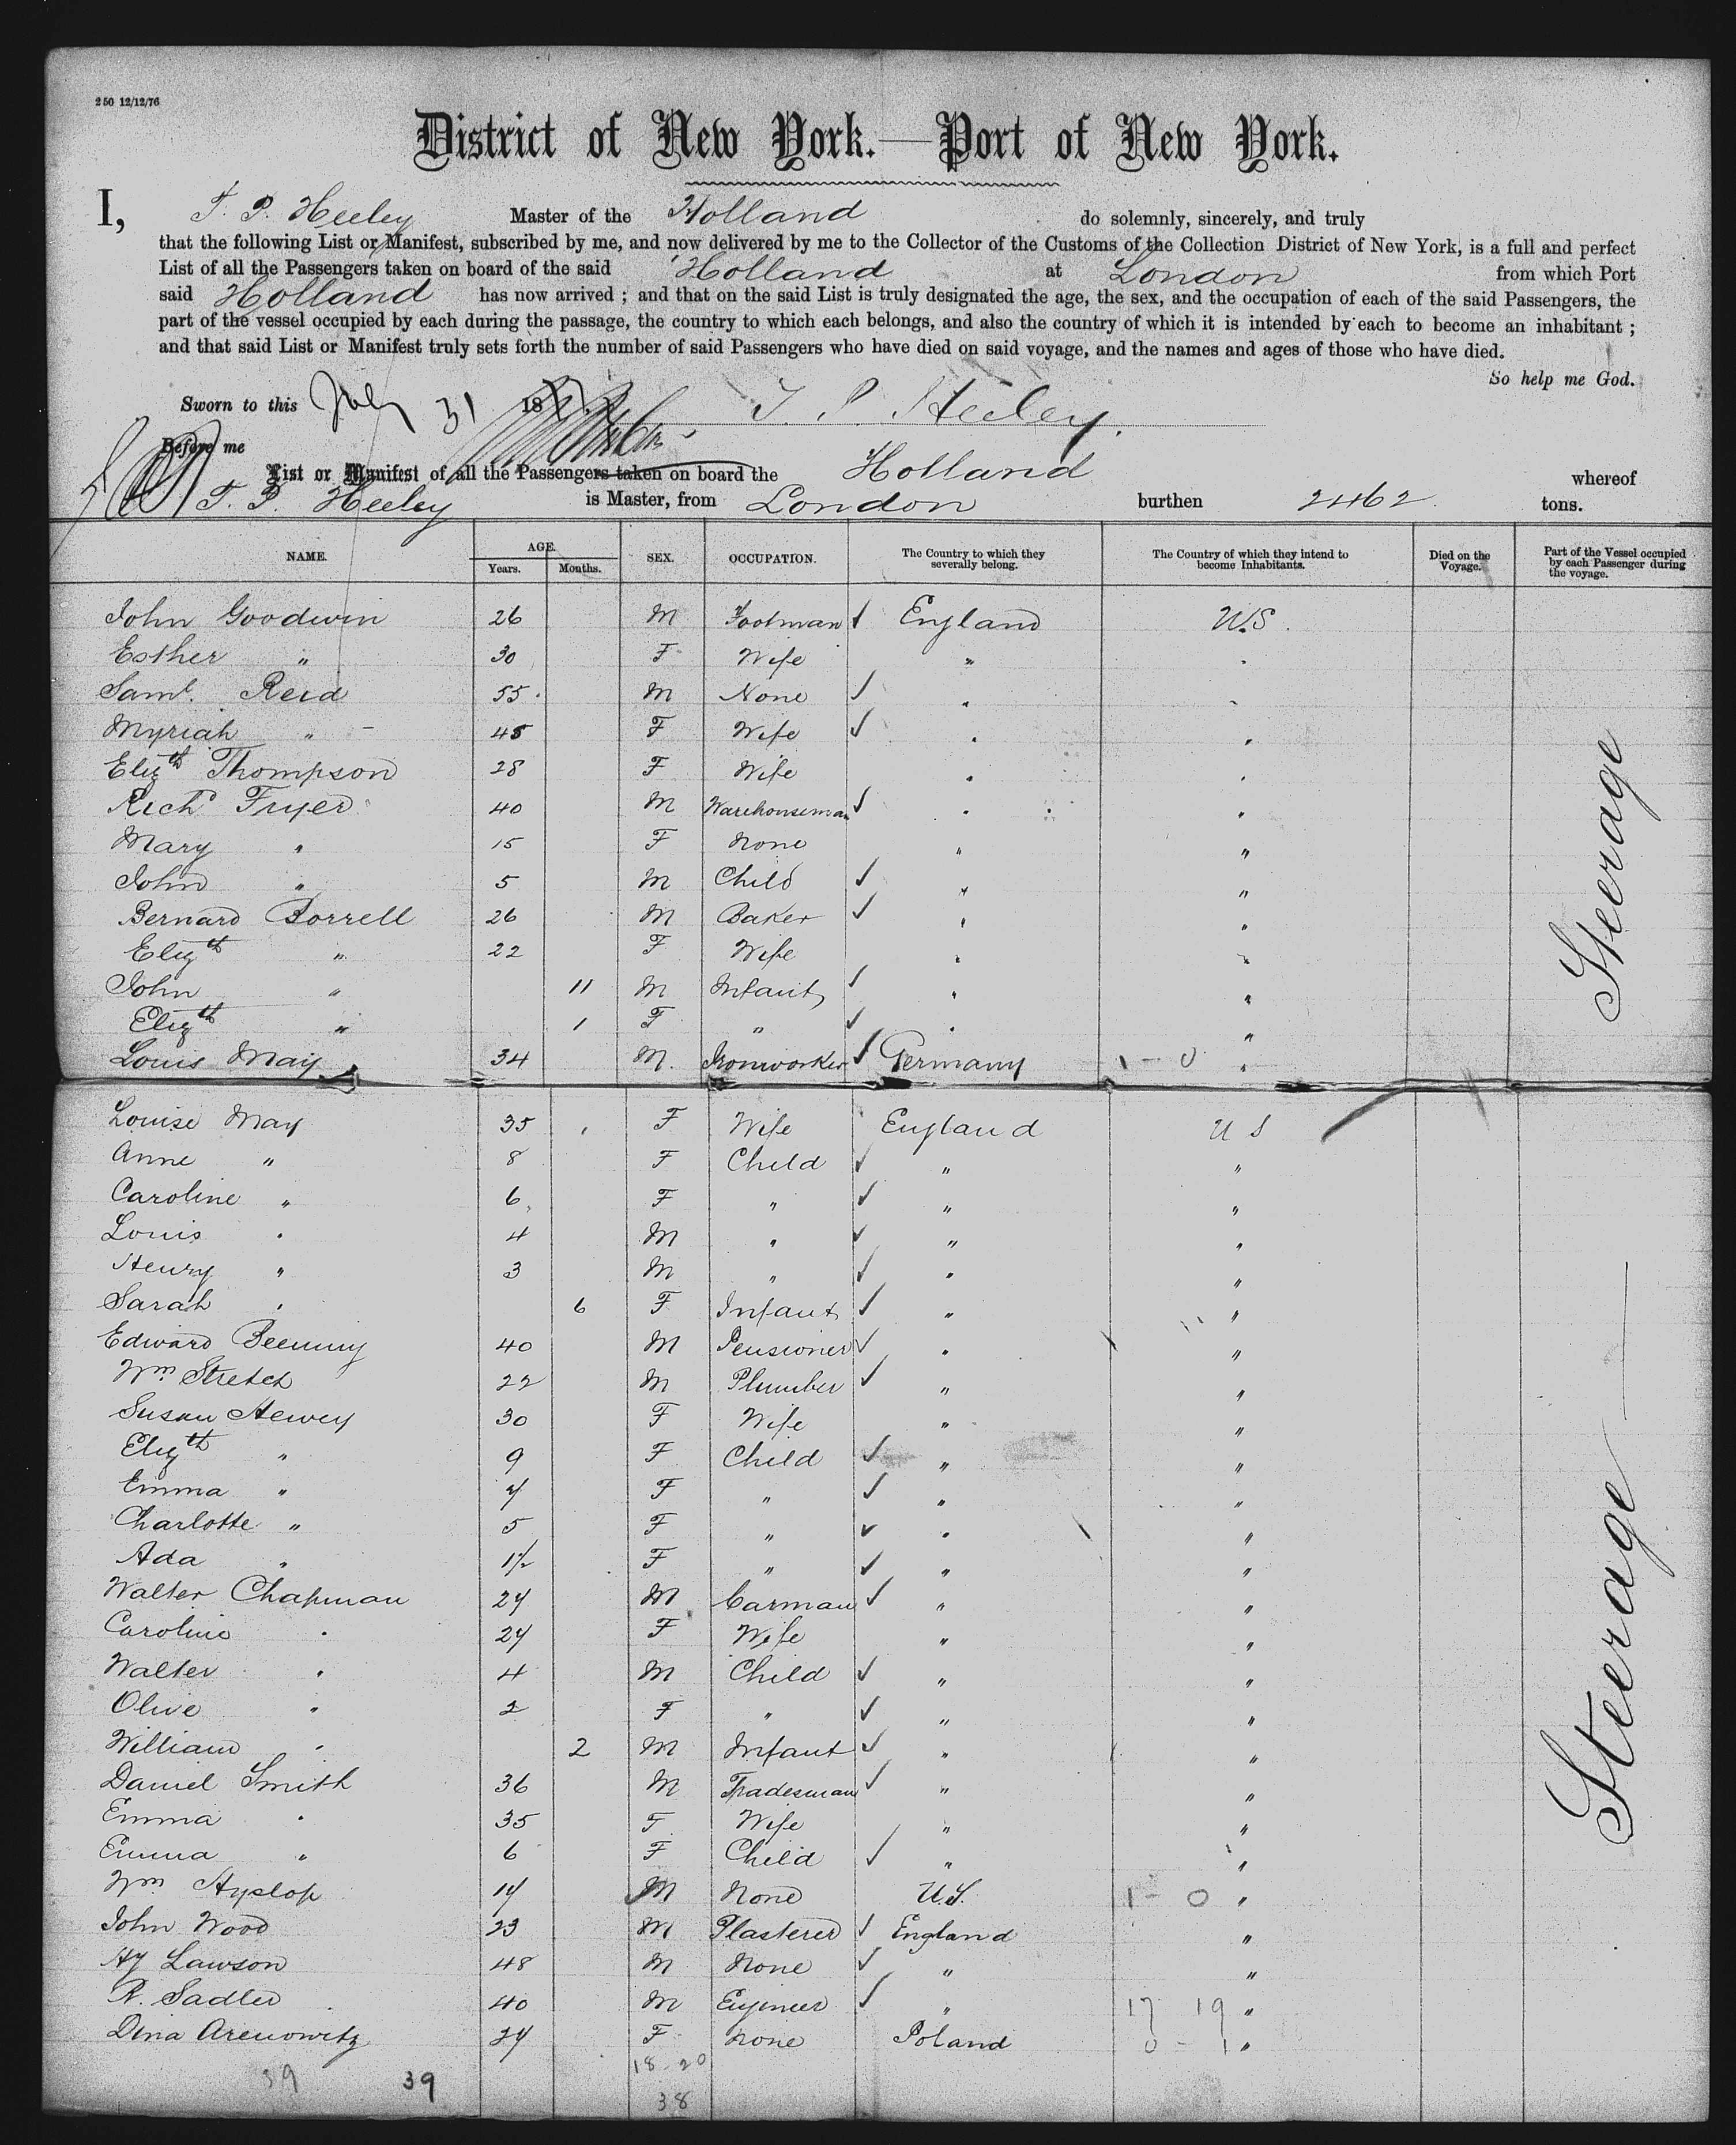 250 12/12/76
District of New York.—Port of New York.
I, T. P. Heeley Master of the Holland do solemnly, sincerely, and truly
that the following List or Manifest, subscribed by me, and now delivered by me to the Collector of the Customs of the Collection District of New York, is a full and perfect
List of all the Passengers taken on board of the said Holland at London from which Port
said Holland has now arrived ; and that on the said List is truly designated the age, the sex, and the occupation of each of the said Passengers, the
part of the vessel occupied by each during the passage, the country to which each belongs, and also the country of which it is intended by each to become an inhabitant ;
and that said List or Manifest truly sets forth the number of said Passengers who have died on said voyage, and the names and ages of those who have died.
So help me God.
Sworn to this July 31 1877 T. P. Heeley.
Before me
List or Manifest of all the Passengers taken on board the Holland whereof
T. P. Heeley is Master, from London burthen 2462 tons.
NAME. AGE. Years. Months. SEX. OCCUPATION. The Country to which they severally belong. The Country of which they intend to become Inhabitants. Died on the Voyage. Part of the Vessel occupied by each Passenger during the voyage.
John Goodwin 26 M Footman ✓ England U.S.
Esther " 30 F Wife " "
Saml. Reid 55 M None ✓ " "
Myriah " 45 F Wife ✓ " "
Elizth Thompson 28 F Wife " "
Richd Fryer 40 M Warehouseman ✓ " "
Mary " 15 F None " "
John " 5 M Child ✓ " "
Bernard Borrell 26 M Baker ✓ " "
Elizth " 22 F Wife " "
John " 11 M Infant ✓ " "
Elizth " 1 F " ✓ " "
Louis May 34 M. Ironworker ✓ Germany 1 - 0 "
Steerage
Louise May 35 F Wife England U S
Anne " 8 F Child ✓ " "
Caroline " 6 F " ✓ " "
Louis " 4 M " ✓ " "
Henry " 3 M " ✓ " "
Sarah " 6 F Infant ✓ " "
Edward 40 M Pensioner ✓ " "
Wm. Stretch 22 M Plumber ✓ " "
Susan Hewey 30 F Wife " "
Elizth " 9 F Child ✓ " "
Emma " 7 F " ✓ " "
Charlotte " 5 F " ✓ " "
Ada " 1½ F " ✓ " "
Walter Chapman 27 M Carman ✓ " "
Caroline " 27 F Wife " "
Walter " 4 M Child ✓ " "
Olive " 2 F " ✓ " "
William " 2 M Infant ✓ " "
Daniel Smith 36 M Tradesman ✓ " "
Emma " 35 F Wife " "
Emma " 6 F Child ✓ " "
Wm Hyslop 17 M None U.S. 1 - 0 "
John Wood 23 M Plasterer ✓ England "
Hy Lawson 48 M None ✓ " "
R. Sadler 40 M Engineer ✓ " 17 19 "
Dina Arenowitz 27 F None Poland 0 - 1 "
Steerage
39 39 18-20
38